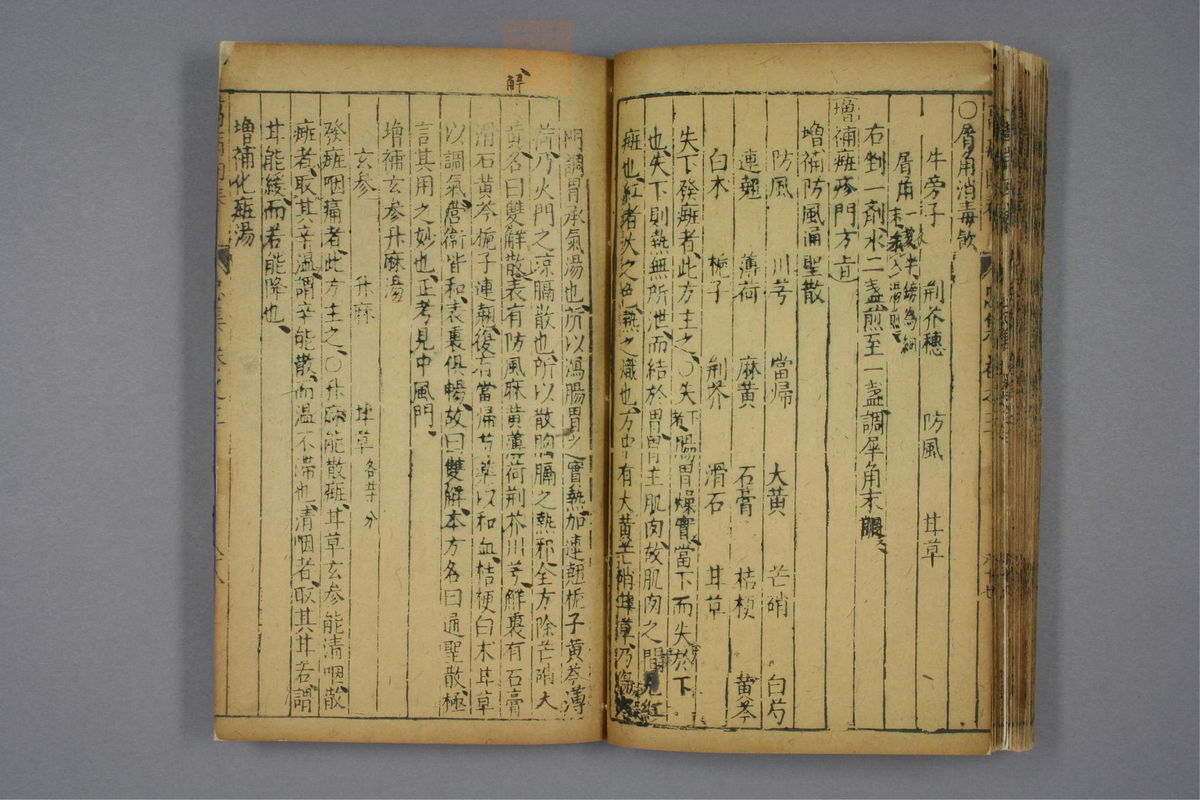 ○犀角消毒飲
牛旁子 荆芥穗 防風 甘草
犀角一錢半鎊為細末入湯煎
右剉一劑水二盞煎至一盞調犀角末服之
增補斑疹門方
增補防風通聖散
防風 川芎 當歸 大黃 芒硝 白芍
連翹 薄荷 麻黃 石膏 桔梗 黃芩
白术 梔子 荆芥 滑石 甘草
失下發斑者此方主之○失下者腸胃燥實當下而失於下
也失下則熱無所泄而結於胃胃主肌肉故肌肉之間見紅
斑也紅者火之色熱之熾也方中有大黃芒硝甘草乃傷寒
門調胃承氣湯也所以瀉腸胃之實熱加連翹梔子黃芩薄
荷乃火門之凉膈散也所以散胸膈之熱邪全方除芒硝大
黃名曰雙解散表有防風麻黃薄荷荆芥川芎解裏有石膏
滑石黃芩梔子連翹復有當歸芍藥以和血桔梗白术甘草
以調氣營衛皆和表裏俱暢故曰雙解本方名曰通聖散極
言其用之妙也正考見中風門
增補玄參升麻湯
玄參 升麻 甘草各等分
發斑咽痛者此方主之○升麻能散斑甘草玄參能清咽散
斑者取其辛溫謂辛能散而溫不滯也清咽者取其甘苦謂
甘能緩而苦能降也
增補化斑湯
解